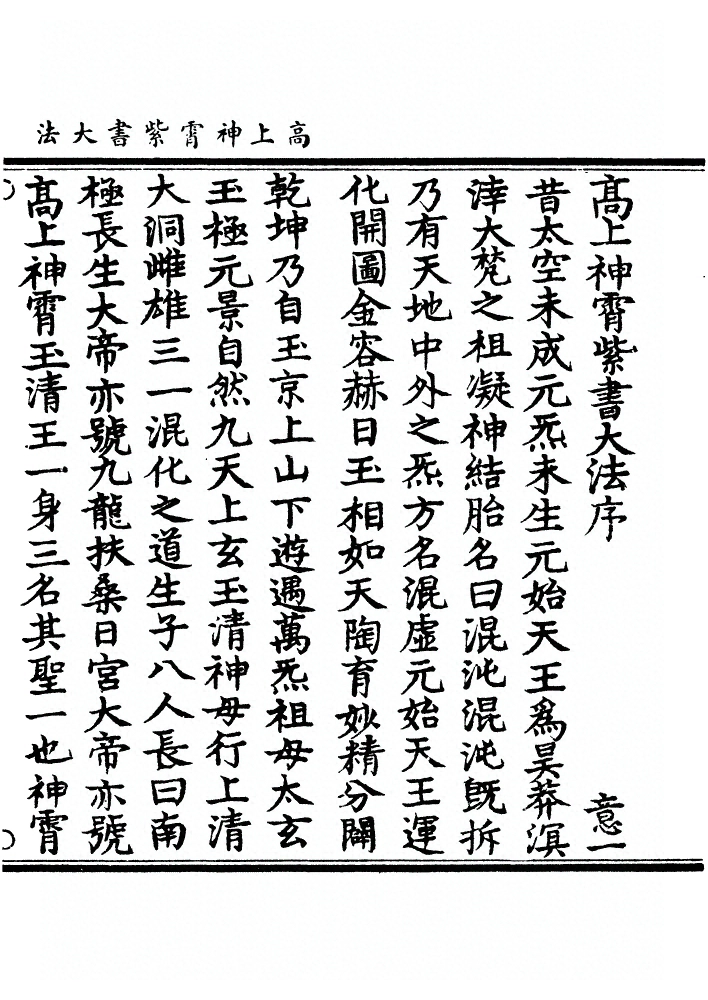 高上神霄紫書大法
高上神霄紫書大法序　意一
昔太空未成元炁未生元始天王爲昊莽溟
涬大梵之祖凝神結胎名曰混沌混沌旣拆
乃有天地中外之炁方名混虛元始天王運
化開圖金容赫日玉相如天陶育妙精分闢
乾坤乃自玉京上山下遊遇萬炁祖母太玄
玉極元景自然九天上玄玉清神母行上清
大洞雌雄三一混化之道生子八人長曰南
極長生大帝亦號九龍扶桑日宮大帝亦號
高上神霄玉清王一身三名其聖一也神霄